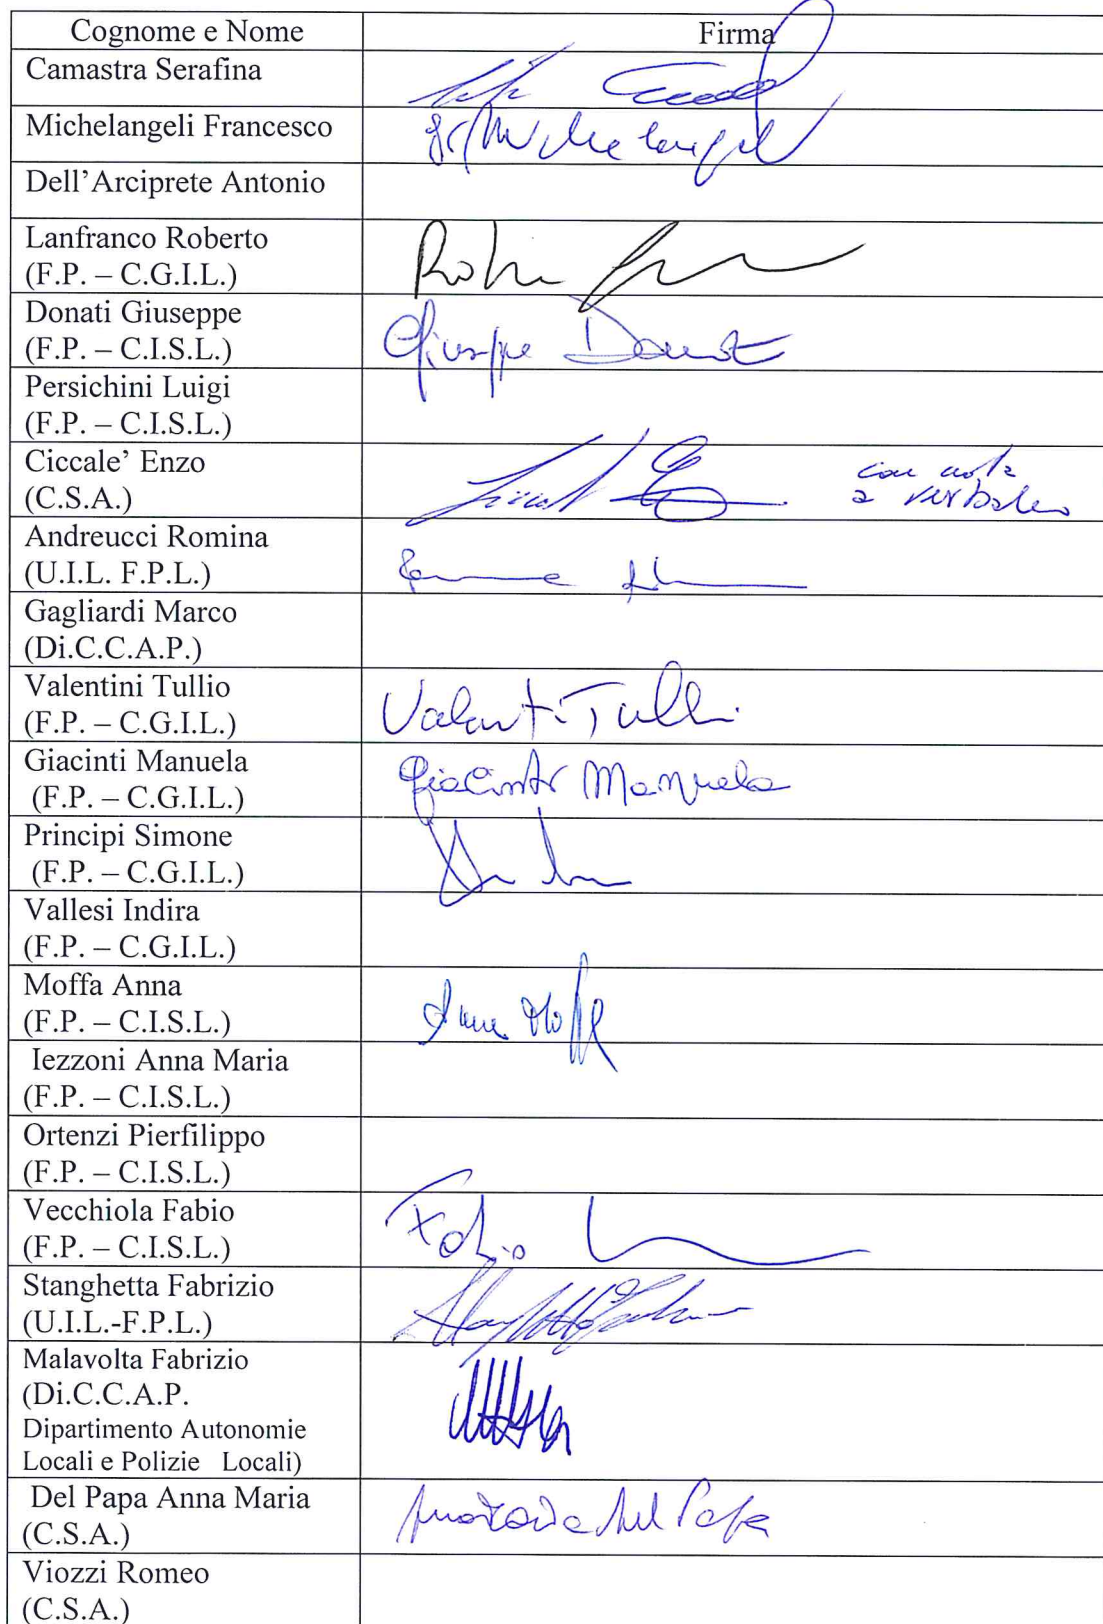 Cognome e Nome Firma
Camastra Serafina
Michelangeli Francesco
Dell'Arciprete Antonio
Lanfranco Roberto
(F.P. – C.G.I.L.)
Donati Giuseppe
(F.P. – C.I.S.L.) Giuseppe Donati
Persichini Luigi
(F.P. – C.I.S.L.)
Ciccale' Enzo con nota
(C.S.A.) a verbale
Andreucci Romina
(U.I.L. F.P.L.)
Gagliardi Marco
(Di.C.C.A.P.)
Valentini Tullio
(F.P. – C.G.I.L.)
Giacinti Manuela
(F.P. – C.G.I.L.) Giacinti Manuela
Principi Simone
(F.P. – C.G.I.L.)
Vallesi Indira
(F.P. – C.G.I.L.)
Moffa Anna
(F.P. – C.I.S.L.) Anna Moffa
Iezzoni Anna Maria
(F.P. – C.I.S.L.)
Ortenzi Pierfilippo
(F.P. – C.I.S.L.)
Vecchiola Fabio
(F.P. – C.I.S.L.) Fabio
Stanghetta Fabrizio
(U.I.L.-F.P.L.)
Malavolta Fabrizio
(Di.C.C.A.P.
Dipartimento Autonomie
Locali e Polizie Locali)
Del Papa Anna Maria
(C.S.A.) Del Papa
Viozzi Romeo
(C.S.A.)